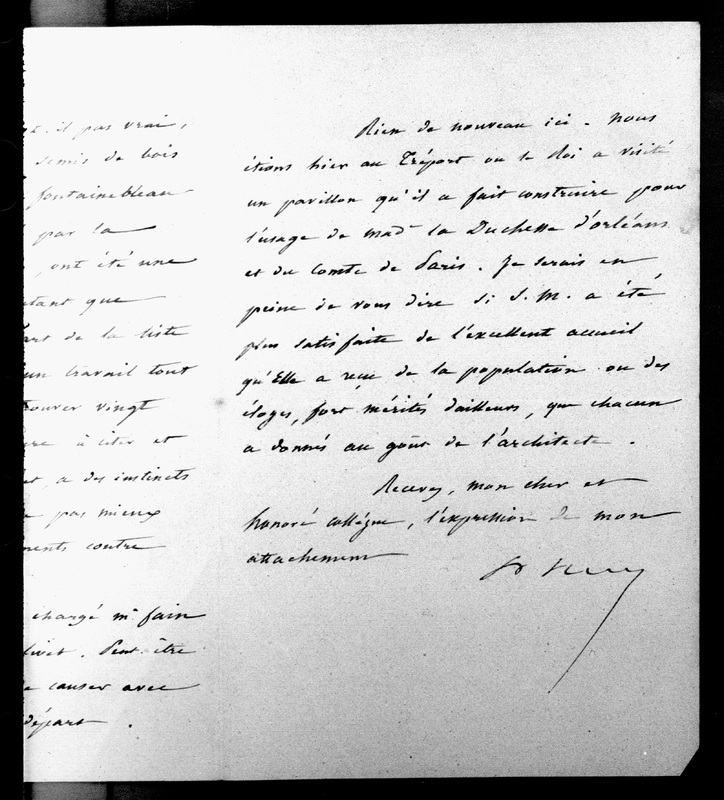 il pas vrai,
semis de bois
fontainebleau
par la
, ont été une
tant que
de la liste
un travail tout
trouver vingt
à citer et
, a des instincts
pas mieux
contre
chargé mr fain
. Peut être
causer avec
départ .
Rien de nouveau ici . Nous
étions hier au Tréport ou le Roi a visité
un pavillon qu'il a fait construire pour
l'usage de Made la Duchesse d'orléans
et du Comte de Paris . Je serais en
peine de vous dire si S. M. a été
plus satisfaite de l'excellent accueil
qu'Elle a reçu de la population ou des
éloges, fort mérités d'ailleurs, que chacun
a donnés au goût de l'architecte .
Recevez, mon cher et
honoré collègue, l'expression de mon
attachement